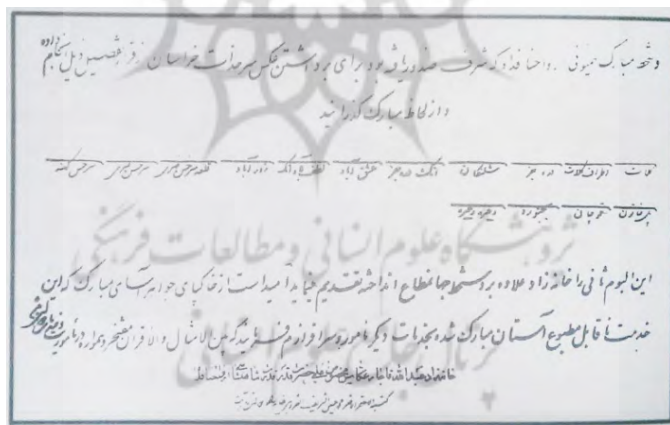 دستخط مبارک همیونی روحنا فداه که شرف صدور یافته بود برای برداشتن عکس سرحدات خراسان از قرار تفصیل ذیل انجام داده
و از لحاظ مبارک گذرانید
کلات اطراف کلات دره جز شلنگان اتک دره جز عشق آباد لطف آباد اتک زورآباد قلعه سرخس ناصری سرخس ناصری سرخس کهنه
قوچان بجنورد وغیره وغیره
این البوم ثانی را خانه زاد علاوه بر دستخط جهانمطاع انداخته تقدیم مینماید امید است از خاکپای جواهر آسای مبارک که این
خدمت ناقابل مطبوع آستان مبارک شده بخدمات دیگر مامور و سرافرازم فرمایند که بین الامثال والاقران مفتخر و همواره در ماموریت
خانه زاد عبدالله قاجار عکاس مخصوص اعلیحضرت قدر قدرت
پژوهشگاه علوم انسانی و مطالعات فرهنگی
پرتال جامع علوم انسانی